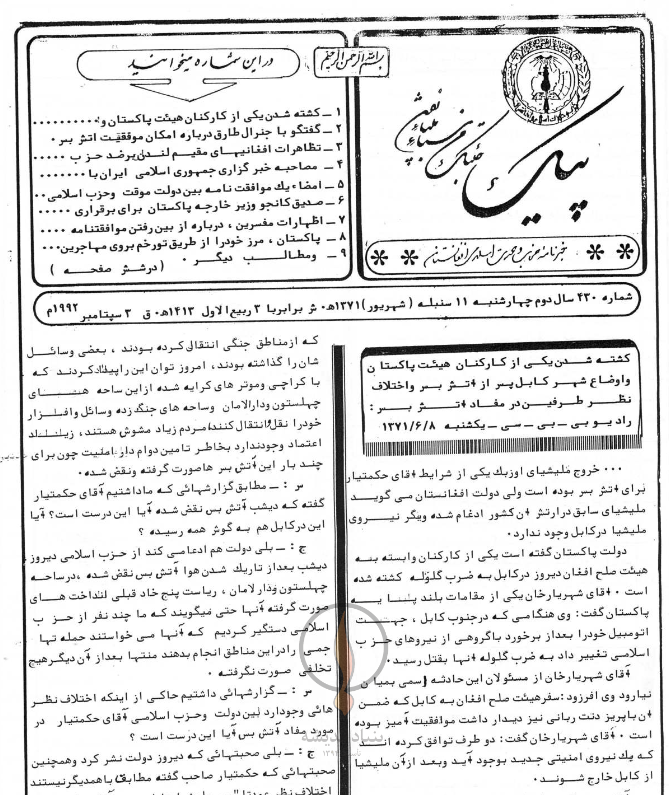 بسم الله الرحمن الرحیم
در این شماره میخوانید
۱ ــ کشته شدن یکی از کارکنان هیئت پاکستان و ..........
۲ ــ گفتگو با جنرال طارق درباره امکان موفقیت اتش بس ۰
۳ ــ تظاهرات افغانیهای مقیم لندن برضد حزب .....
۴ ــ مصاحبه خبر گزاری جمهوری اسلامی ایران با ........
۵ ــ امضاء یك موافقت نامه بین دولت موقت وحزب اسلامی ..
۶ ــ صدیق کانجو وزیر خارجه پاکستان برای برقراری .....
۷ ــ اظهارات مفسرین ، درباره از بین رفتن موافقتنامه ....
۸ ــ پاکستان ، مرز خودرا از طریق تورخم بروی مهاجرین ...
۹ ــ ومطالب دیگر ۰ ( درشش صفحه )
پیک
شماره ۴۳۰ سال دوم چهارشنبه ۱۱ سنبله ( شهریور ) ۱۳۷۱ه۰ ش برابربا ۳ ربیع الاول ۱۴۱۳ه۰ ق ۳ سپتامبر ۱۹۹۲م
کشته شدن یکی از کارکنان هیئت پاکستان
واوضاع شهر کابل پس از آتش بس واختلاف
نظر طرفین در مفاد آتش بس :
رادیو بی ــ بی ــ سی ــ یکشنبه ۱۳۷۱/۶/۸
... خروج ملیشیای اوزبك یکی از شرایط آقای حکمتیار
برای آتش بس بوده است ولی دولت افغانستان می گوید
ملیشیای سابق درارتش آن کشور ادغام شده ودیگر نیروی
ملیشیا درکابل وجود ندارد ۰
دولت پاکستان گفته است یکی از کارکنان وابسته به
هیئت صلح افغان دیروز درکابل به ضرب گلوله کشته شده
است ۰ آقای شهریارخان یکی از مقامات بلند پایه
پاکستان گفت : وی هنگامی که درجنوب کابل ، جهت
اتومبیل خودرا بعداز برخورد باگروهی از نیروهای حزب
اسلامی تغییر داد به ضرب گلوله آنها بقتل رسید ۰
آقای شهریارخان از مسئولان این حادثه رسمی بمیان
نیارود وی افزود : سفرهیئت صلح افغان به کابل که ضمن
آن باپریز دنت ربانی نیز دیدار داشت موفقیت آمیز بوده
است ۰ آقای شهریارخان گفت : دو طرف توافق کرده اند
که یك نیروی امنیتی جدید بوجود آید وبعد ازآن ملیشیا
از کابل خارج شوند ۰
که ازمناطق جنگی انتقال کرده بودند ، بعضی وسائل
شان را گذاشته بودند ، امروز توان این راپیدا کردند که
با کراچی وموتر های کرایه شده ازاین ساحه های
چهلستون ودارالامان وساحه های جنگ زده وسائل وافزار
خودرا نقل انتقال کنند مردم زیاد مشوش هستند ،
اعتماد وجودندارد بخاطر تامین دوام دار امنیت چون برای
چند بار این آتش بس هاصورت گرفته ونقض شده ۰
س : ــ مطابق گزارشهائی که ماداشتیم آقای حکمتیار
گفته که دیشب آتش بس نقض شده آیا این درست است؟ آیا
این درکابل هم به گوش همه رسیده ؟
ج : ــ بلی دولت هم ادعا می کند از حزب اسلامی دیروز
دیشب بعداز تاریك شدن هوا آتش بس نقض شده ، درساحه
چهلستون ودار لامان ، ریاست پنج خاد قبلی انداخت های
صورت گرفته آنها حتی میگویند که ما چند نفر از حزب
اسلامی دستگیر کردیم که آنها می خواستند حمله تها
جمی رادراین مناطق انجام بدهند منتها بعداز آن دیگرهیچ
تخلفی صورت نگرفته ۰
س : ــ گزارشهائی داشتیم حاکی از اینکه اختلاف نظر
هائی وجودارد بین دولت وحزب اسلامی آقای حکمتیار در
مورد مفاد آتش بس آیا این درست است ؟
ج : ــ بلی صحبتهائی که دیروز دولت نشر کرد وهمچنین
صحبتهائی که حکمتیار صاحب گفته مطابق باهمدیگر نیستند
بنیاد اندیشه